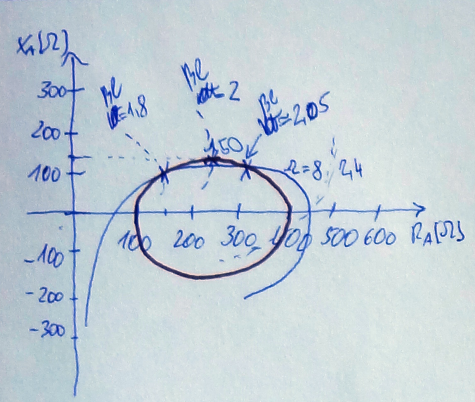 XA[Ω]
300
200
100
-100
-200
-300
βl
=1,8
βl
=2
βl
=2,05
150
r=8
2,4
100 200 300 400 500 600 RA[Ω]